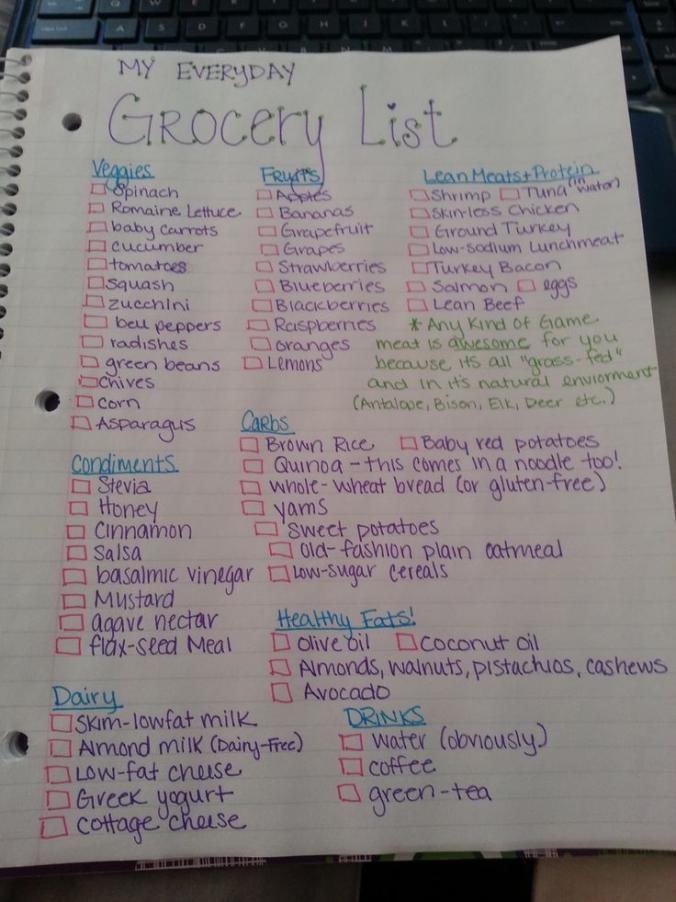 MY EVERYDAY
GROCERY LIST
Veggies
Spinach
Romaine Lettuce
baby carrots
cucumber
tomatoes
squash
zucchini
bell peppers
radishes
green beans
chives
corn
Asparagus
Fruits
Apples
Bananas
Grapefruit
Grapes
Strawberries
Blueberries
Blackberries
Raspberries
oranges
Lemons
Lean Meats + Protein
Shrimp Tuna (in water)
Skinless Chicken
Ground Turkey
Low-sodium Lunchmeat
Turkey Bacon
Salmon eggs
Lean Beef
* Any Kind of Game
meat is awesome for you
because its all "grass-fed"
and in it's natural enviorment
(Antalope, Bison, Elk, Deer etc.)
Condiments
Stevia
Honey
Cinnamon
Salsa
basalmic vinegar
Mustard
agave nectar
flax-seed Meal
Carbs
Brown Rice Baby red potatoes
Quinoa - this comes in a noodle too!
whole-wheat bread (or gluten-free)
yams
sweet potatoes
old-fashion plain oatmeal
Low-sugar cereals
Healthy Fats!
Olive oil Coconut oil
Almonds, walnuts, pistachios, cashews
Avocado
Dairy
Skim-lowfat milk
Almond milk (Dairy-Free)
Low-fat cheese
Greek yogurt
cottage cheese
DRINKS
water (obviously)
coffee
green-tea